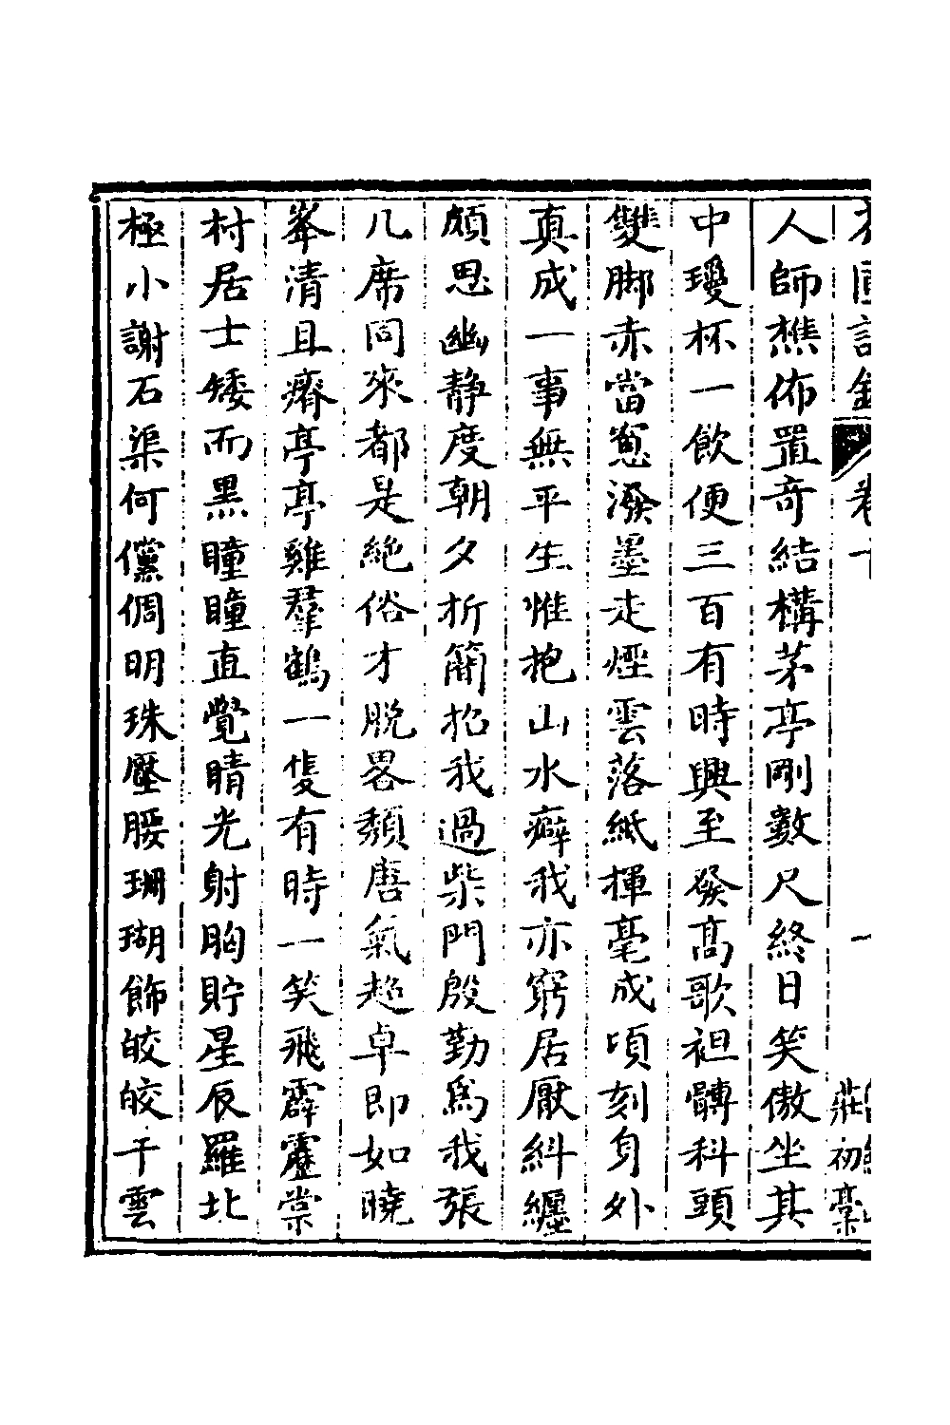 卷十
一
莊初稾
人師樵佈置奇結構茅亭剛數尺終日笑傲坐其
中瓇杯一飲便三百有時興至發高歌袒髆科頭
雙脚赤當窻潑墨走煙雲落紙揮毫成頃刻身外
真成一事無平生惟抱山水癖我亦窮居厭糾纏
頗思幽靜度朝夕折簡招我過柴門殷勤爲我張
几席同來都是絶俗才脫畧頽唐氣超卓卽如曉
峯清且瘠亭亭雞羣鶴一隻有時一笑飛霹靂棠
村居士矮而黑瞳瞳直覺睛光射胸貯星辰羅北
極小謝石渠何儻倜明珠壓腰珊瑚飾皎皎干雲